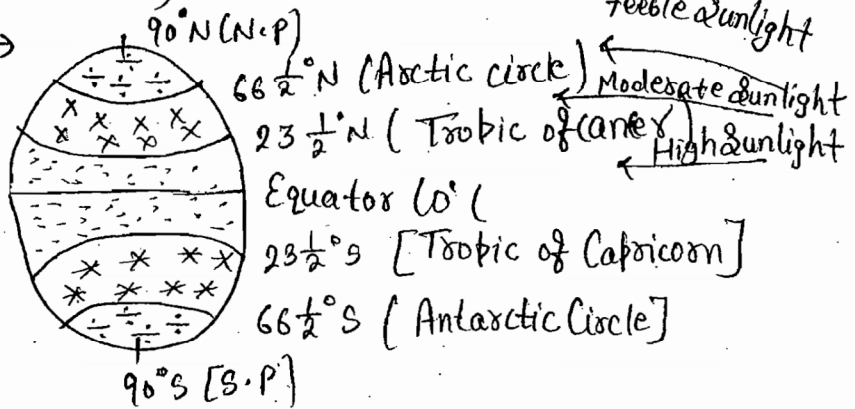 90°N (N.P)
feeble Sunlight
66 1/2°N (Arctic circle)
Moderate Sunlight
23 1/2°N ( Tropic of Cancer )
High Sunlight
Equator (0° (
23 1/2°S [Tropic of Capricorn]
66 1/2°S ( Antarctic Circle]
90°S [S.P]